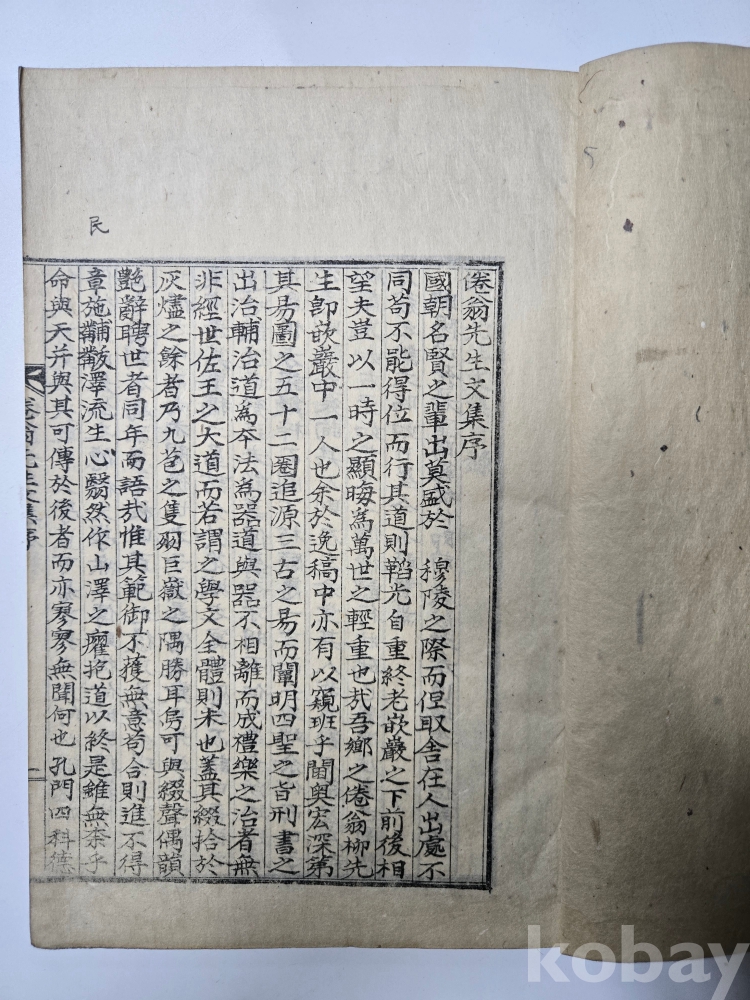 倦翁先生文集序
國朝名賢之輩出莫盛於 穆陵之際而但取舍在人出處不
同苟不能得位而行其道則韜光自重終老嵌巖之下前後相
望夫豈以一時之顯晦為萬世之輕重也哉吾鄉之倦翁柳先
生卽嵌巖中一人也余於逸稿中亦有以窺班乎閫奧宏深第
其易圖之五十二圈追源三古之易而闡明四聖之旨刑書之
出治輔治道為夲法為器道與器不相離而成禮樂之治者無
非經世佐王之大道而若謂之學文全體則未也蓋其綴拾於
灰燼之餘者乃九苞之隻羽巨嶽之隅勝耳烏可與綴聲偶韻
艷辭騁世者同年而語哉惟其範御不獲無意苟合則進不得
章施黼黻澤流生心翳然作山澤之癯抱道以終是雖無柰乎
命與天并與其可傳於後者而亦寥寥無聞何也孔門四科德
倦翁先生文集序
一
民
kobay